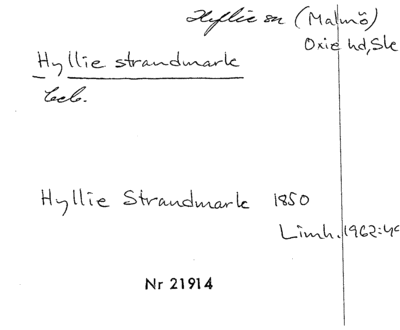 Hyllie sn (Malmö)
Oxie hd, Sk
Hyllie strandmark
beb.
Hyllie Strandmark 1850
Limh. 1962:4
Nr 21914